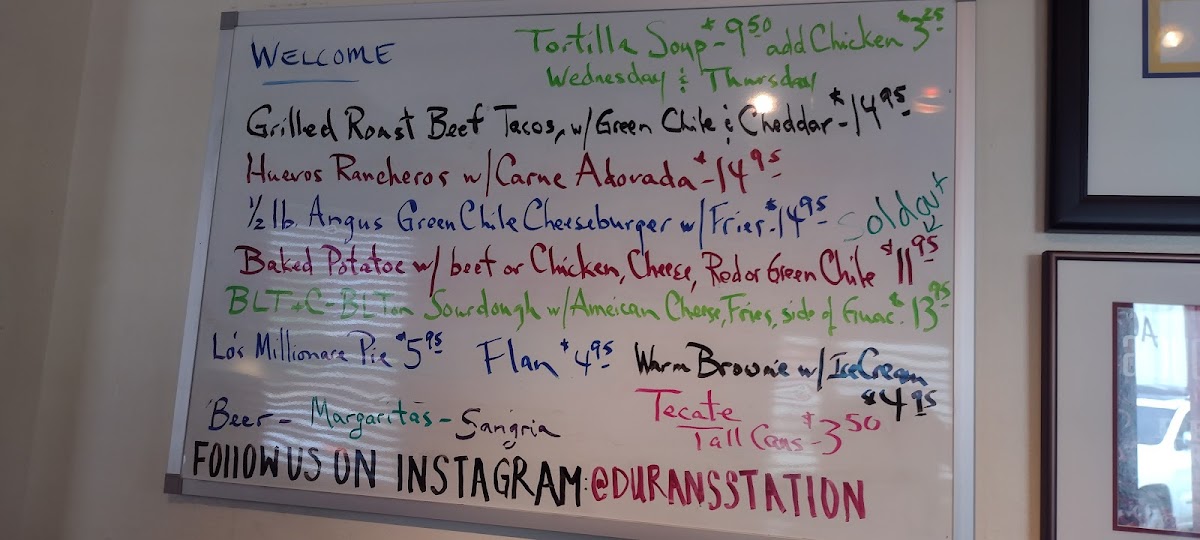 WELCOME
Tortilla Soup - $9.50 add Chicken $3.25
Wednesday & Thursday
Grilled Roast Beef Tacos, w/ Green Chile & Cheddar - $14.95
Huevos Rancheros w/ Carne Adovada - $14.95
1/2 lb. Angus Green Chile Cheeseburger w/ Fries - $14.95
Sold out
Baked Potatoe w/ beef or Chicken, Cheese, Red or Green Chile $11.95
BLT+C - BLT on Sourdough w/ Ameican Cheese, Fries, side of Guac. $13.95
Lo's Millionare Pie $5.95 Flan $4.95 Warm Brownie w/ Ice Cream
$4.95
Beer - Margaritas - Sangria
Tecate
Tall Cans - $3.50
FOllOW US ON INSTAGRAM: @DURANSSTATION